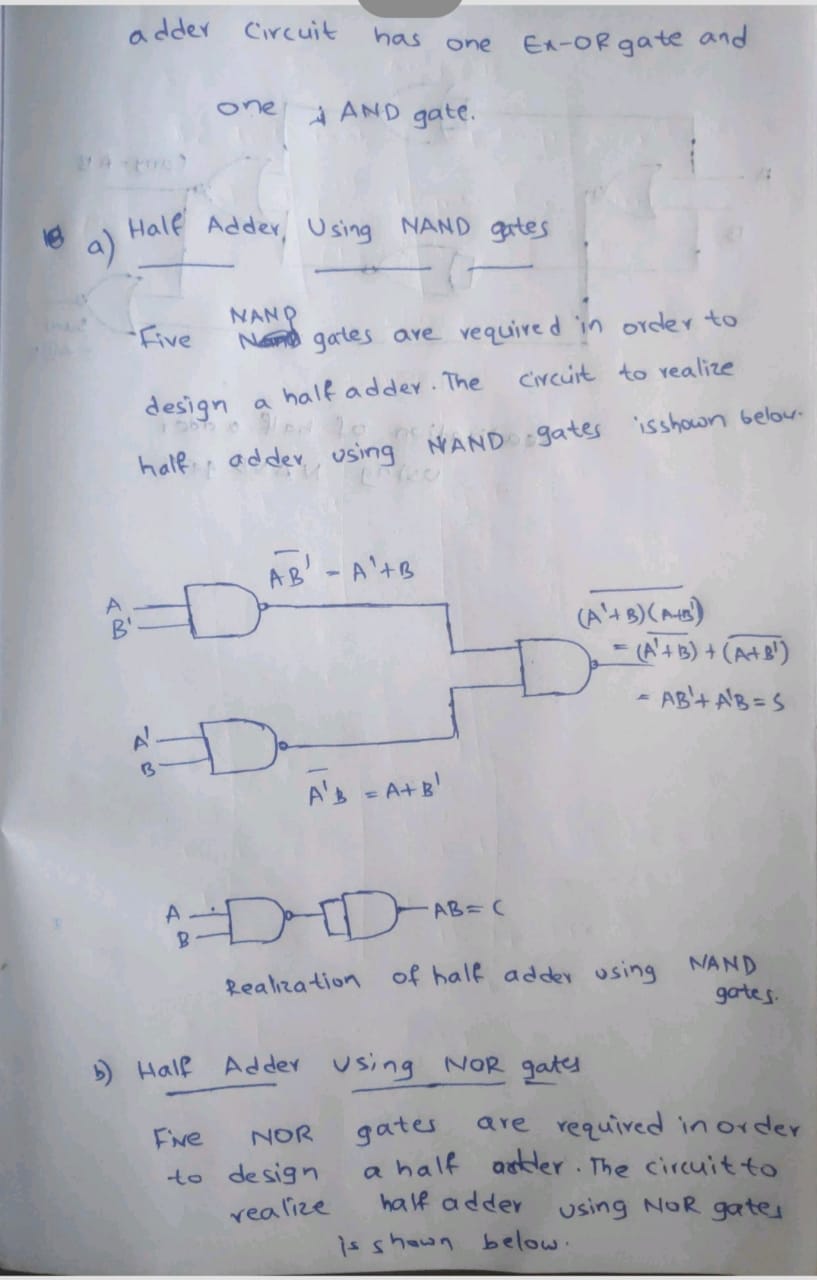 adder Circuit has one Ex-OR gate and
one AND gate.
a) Half Adder Using NAND gates
NAND
Five gates are required in order to
design a half adder. The circuit to realize
half adder using NAND gates is shown below.
A̅B̅'̅ - A'+B
A
B'
(̅A̅'̅+̅B̅)̅(̅A̅+̅B̅'̅)̅
= (̅A̅'̅+̅B̅)̅ + (̅A̅+̅B̅'̅)̅
= AB'+A'B=S
A'
B
A̅'̅B = A+B'
A
B
AB= C
Realization of half adder using NAND
gates.
b) Half Adder Using NOR gates
Five NOR gates are required in order
to design a half adder. The circuit to
realize half adder using NOR gates
is shown below.